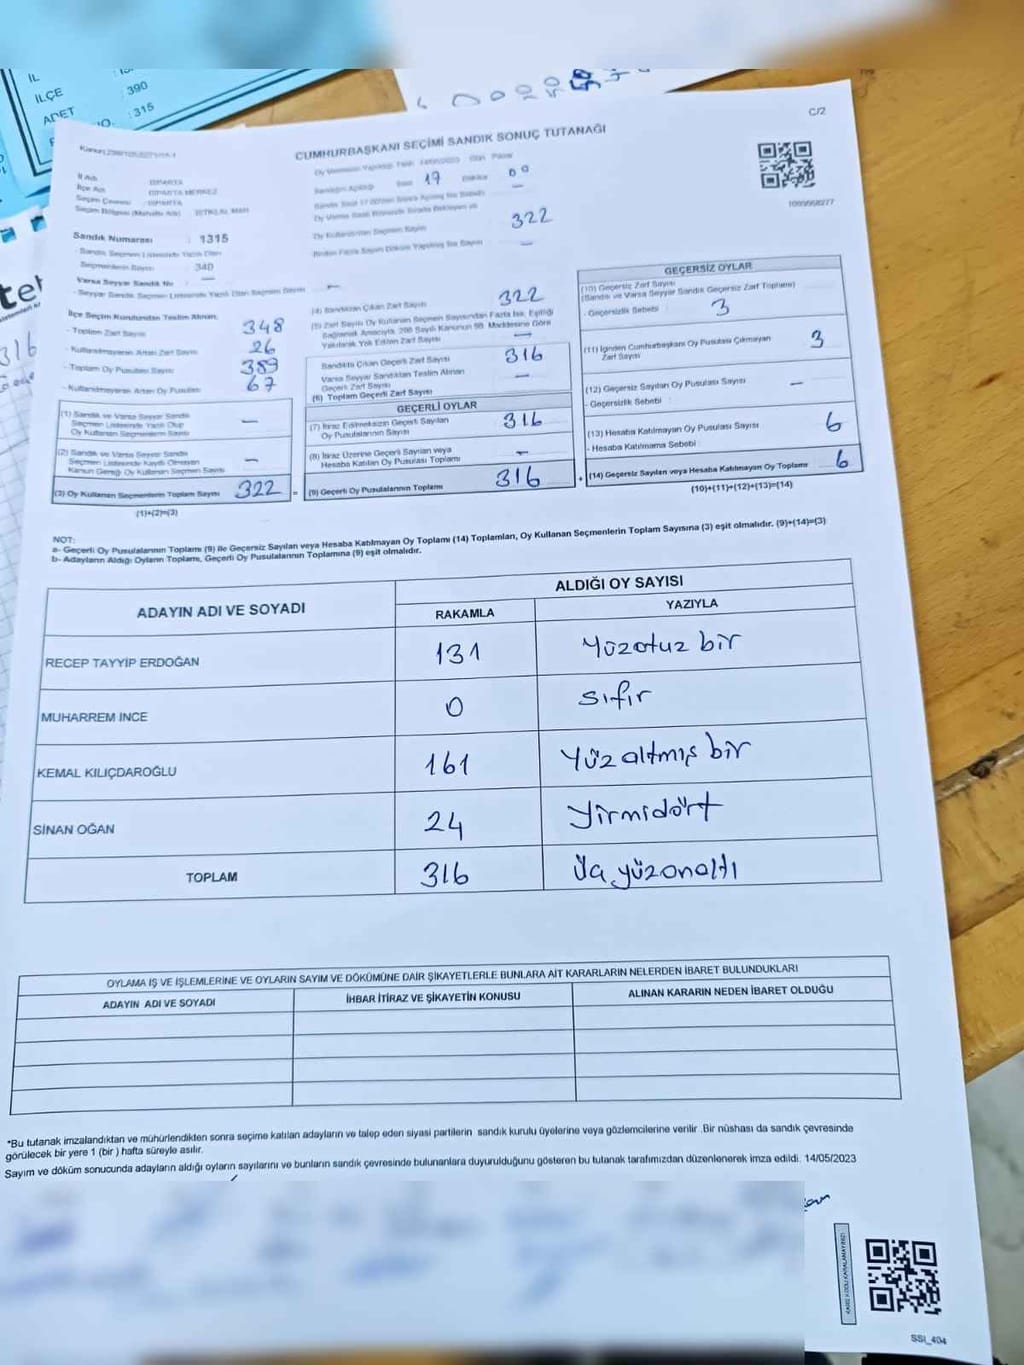 İL
İLÇE : 390
ADET : 315
C/2
CUMHURBAŞKANI SEÇİMİ SANDIK SONUÇ TUTANAĞI
İl Adı : ISPARTA
İlçe Adı : ISPARTA MERKEZ
Seçim Çevresi : ISPARTA
Seçim Bölgesi (Mahalle Adı) : İSTİKLAL MAH.
17 00
1099998277
Oy Kullanan Seçmen Sayısı 322
Sandık Numarası : 1315
Sandık Seçmen Listesinde Yazılı Olan
Seçmenlerin Sayısı : 340
Varsa Seyyar Sandık No : —
- Seyyar Sandık Seçmen Listesinde Yazılı Olan Seçmen Sayısı : —
İlçe Seçim Kurulundan Teslim Alınan;
- Toplam Zarf Sayısı 348
- Kullanılmayarak Artan Zarf Sayısı 26
- Toplam Oy Pusulası Sayısı 389
- Kullanılmayarak Artan Oy Pusulası 67
(1) Sandık ve Varsa Seyyar Sandık
Seçmen Listesinde Yazılı Olup
Oy Kullanan Seçmenlerin Sayısı —
(2) Sandık ve Varsa Seyyar Sandık
Seçmen Listesinde Kayıtlı Olmayan
Kanun Gereği Oy Kullanan Seçmen Sayısı —
(3) Oy Kullanan Seçmenlerin Toplam Sayısı 322
(1)+(2)=(3)
(4) Sandıktan Çıkan Zarf Sayısı 322
(5) Zarf Sayısı Oy Kullanan Seçmen Sayısından Fazla İse, Eşitliği
Sağlamak Amacıyla, 298 Sayılı Kanunun 98. Maddesine Göre
Yakılarak Yok Edilen Zarf Sayısı —
Sandıkta Çıkan Geçerli Zarf Sayısı 316
Varsa Seyyar Sandıktan Teslim Alınan
Geçerli Zarf Sayısı —
(6) Toplam Geçerli Zarf Sayısı
GEÇERLİ OYLAR
(7) İtiraz Edilmeksizin Geçerli Sayılan
Oy Pusulalarının Sayısı 316
(8) İtiraz Üzerine Geçerli Sayılan veya
Hesaba Katılan Oy Pusulası Toplamı —
(9) Geçerli Oy Pusulalarının Toplamı 316
GEÇERSİZ OYLAR
(10) Geçersiz Zarf Sayısı
(Sandık ve Varsa Seyyar Sandık Geçersiz Zarf Toplamı)
- Geçersizlik Sebebi : 3
(11) İçinden Cumhurbaşkanı Oy Pusulası Çıkmayan
Zarf Sayısı 3
(12) Geçersiz Sayılan Oy Pusulası Sayısı —
- Geçersizlik Sebebi :
(13) Hesaba Katılmayan Oy Pusulası Sayısı 6
- Hesaba Katılmama Sebebi :
(14) Geçersiz Sayılan veya Hesaba Katılmayan Oy Toplamı 6
(10)+(11)+(12)+(13)=(14)
NOT:
a- Geçerli Oy Pusulalarının Toplamı (9) ile Geçersiz Sayılan veya Hesaba Katılmayan Oy Toplamı (14) Toplamları, Oy Kullanan Seçmenlerin Toplam Sayısına (3) eşit olmalıdır. (9)+(14)=(3)
b- Adayların Aldığı Oyların Toplamı, Geçerli Oy Pusulalarının Toplamına (9) eşit olmalıdır.
ADAYIN ADI VE SOYADI ALDIĞI OY SAYISI
RAKAMLA YAZIYLA
RECEP TAYYİP ERDOĞAN 131 Yüzotuz bir
MUHARREM İNCE 0 sıfır
KEMAL KILIÇDAROĞLU 161 Yüz altmış bir
SİNAN OĞAN 24 Yirmidört
TOPLAM 316 Üç yüzonaltı
OYLAMA İŞ VE İŞLEMLERİNE VE OYLARIN SAYIM VE DÖKÜMÜNE DAİR ŞİKAYETLERLE BUNLARA AİT KARARLARIN NELERDEN İBARET BULUNDUKLARI
ADAYIN ADI VE SOYADI İHBAR İTİRAZ VE ŞİKAYETİN KONUSU ALINAN KARARIN NEDEN İBARET OLDUĞU
*Bu tutanak imzalandıktan ve mühürlendikten sonra seçime katılan adayların ve talep eden siyasi partilerin sandık kurulu üyelerine veya gözlemcilerine verilir .Bir nüshası da sandık çevresinde
görülecek bir yere 1 (bir ) hafta süreyle asılır.
Sayım ve döküm sonucunda adayların aldığı oyların sayılarını ve bunların sandık çevresinde bulunanlara duyurulduğunu gösteren bu tutanak tarafımızdan düzenlenerek imza edildi. 14/05/2023
SSI_404